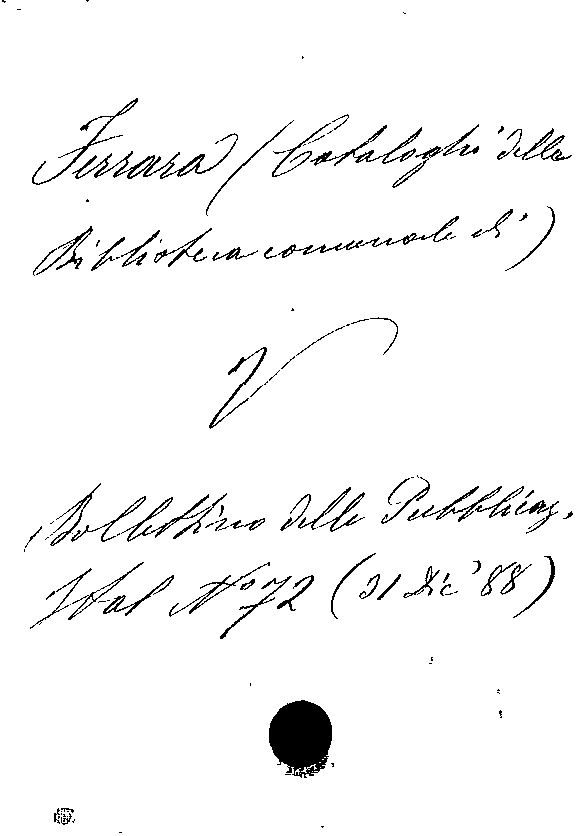 Ferrara (Cataloghi della
Biblioteca comunale di)
V
Bollettino delle Pubblicaz.
Ital N.º 72 (31 Dic. 88)